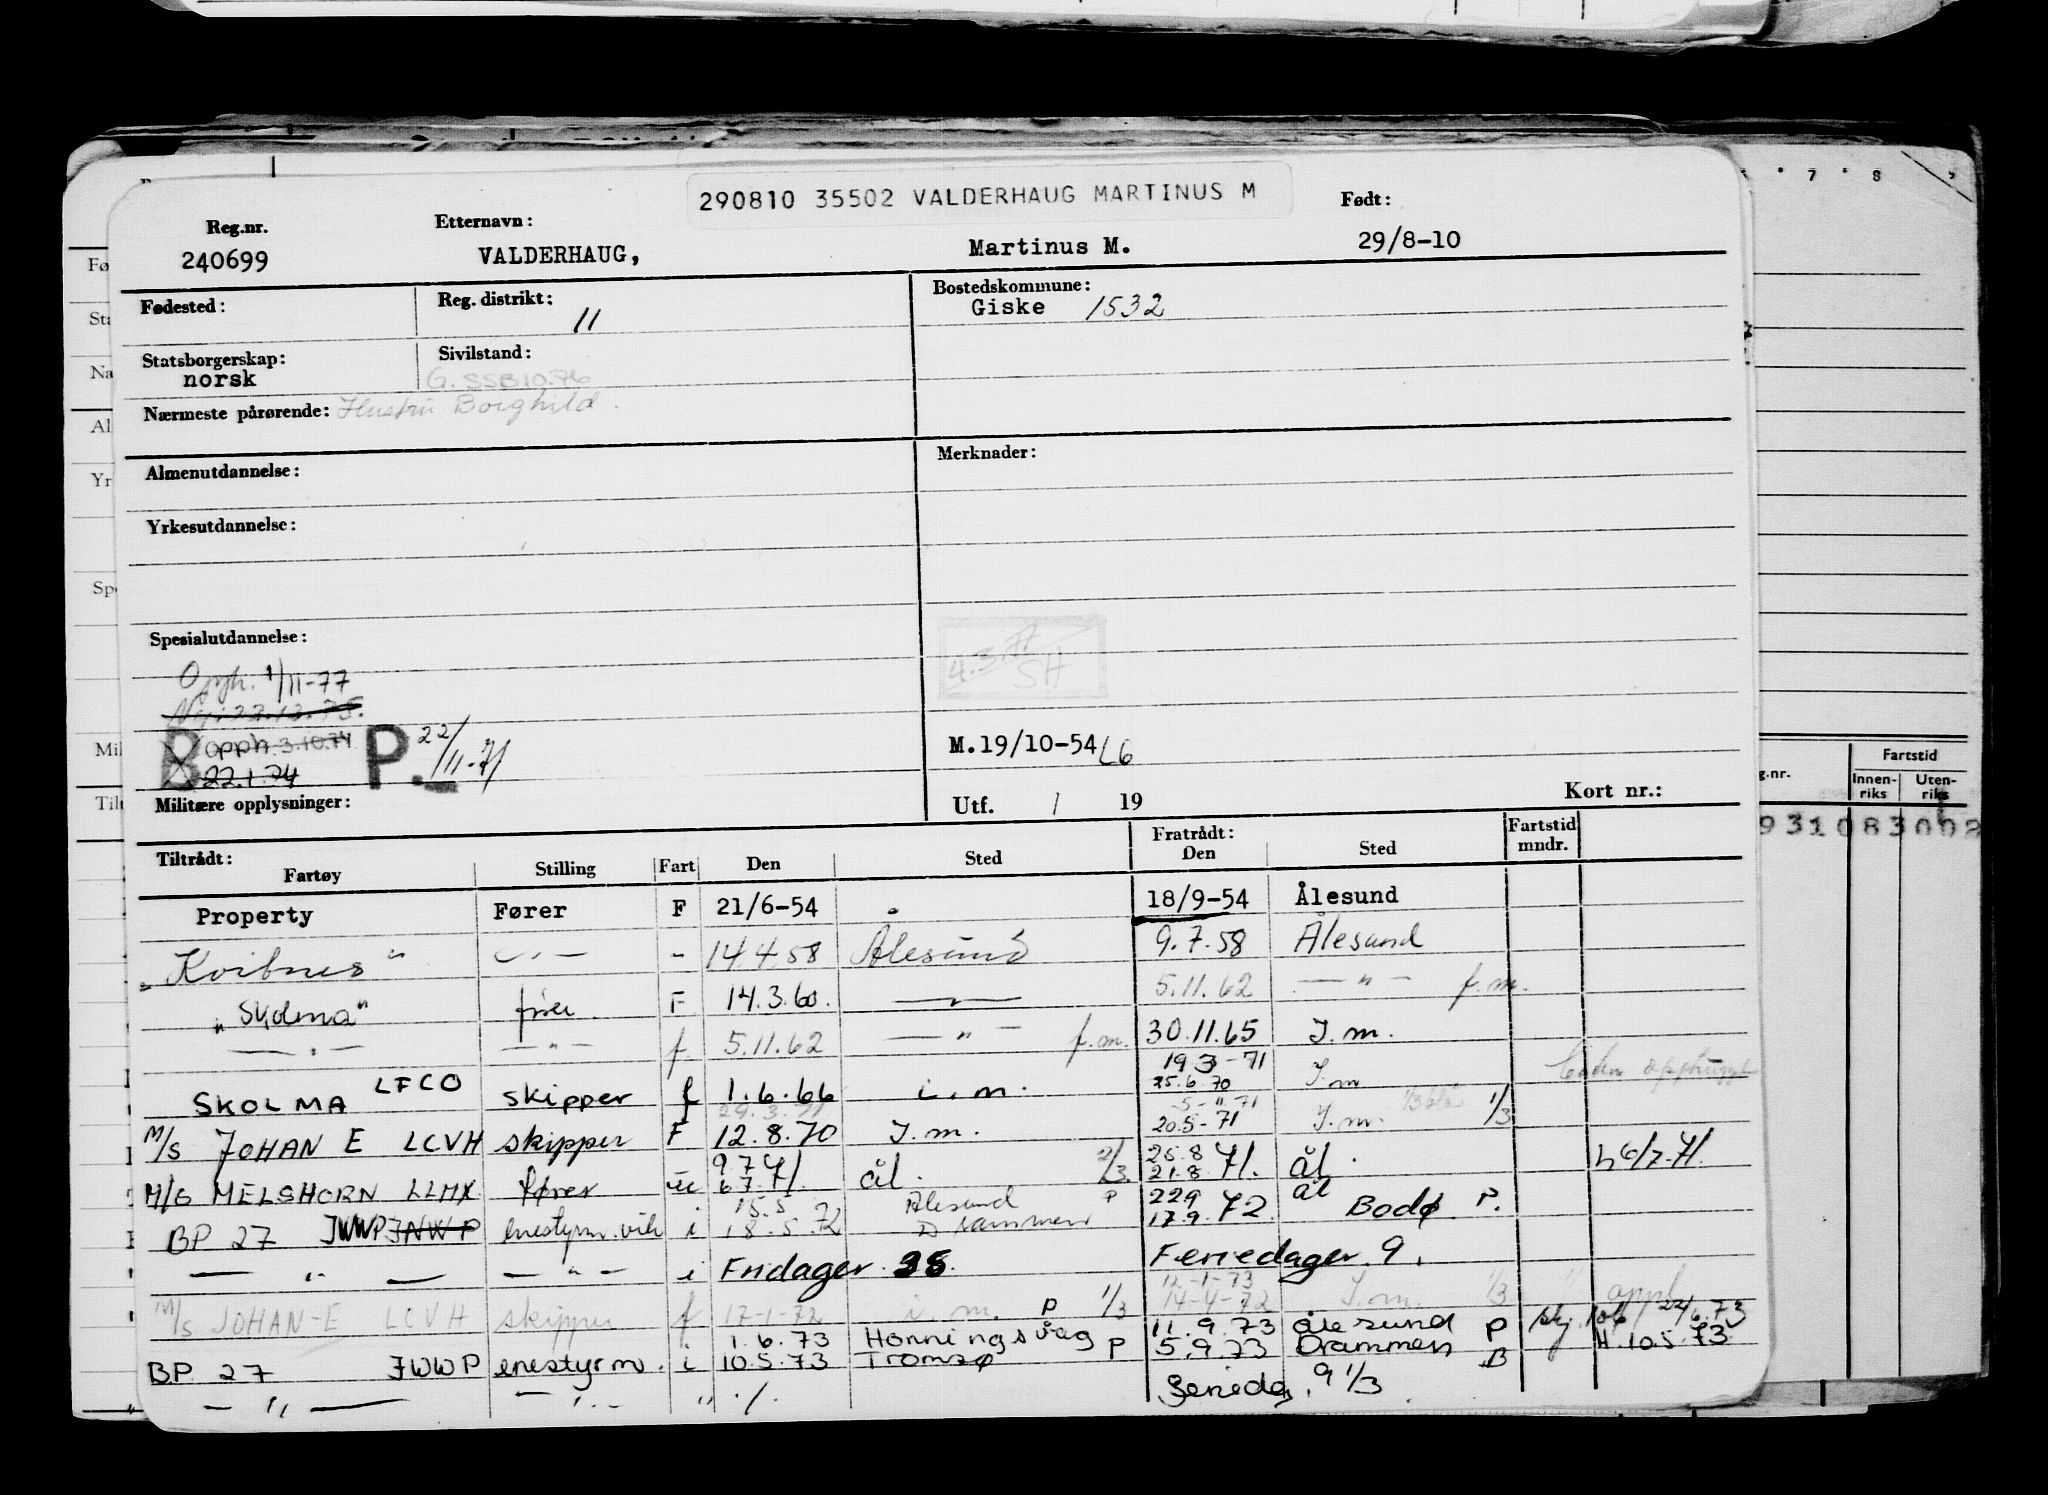 290810 35502 VALDERHAUG MARTINUS M
Reg.nr. Etternavn: Født:
240699 VALDERHAUG, Martinus M. 29/8-10
Fødested: Reg. distrikt: 11 Bostedskommune: Giske 1532
Statsborgerskap: norsk Sivilstand: G. SSB 10.76
Nærmeste pårørende: Hustru Borghild.
Almenutdannelse: Merknader:
Yrkesutdannelse:
Spesialutdannelse:
4.3.71 SH
Opph. 1/11-77
Ny: 22.12.75.
B opph. 3.10.74 P. 22/11-71
22.1.74
M.19/10-54 L6
Militære opplysninger: Utf. / 19 Kort nr.:
Tiltrådt: Fratrådt: Fartstid
Fartøy Stilling Fart Den Sted Den Sted mndr.
Property Fører F 21/6-54 18/9-54 Ålesund
"Kvitnes" — " — " 14.4.58 Ålesund 9.7.58 Ålesund
"Skolma" fører F 14.3.60. — " — 5.11.62 — " — f.m.
— " — — " — f. 5.11.62 — " — f.m. 30.11.65 I.m.
19 3-71
SKOLMA LFCO skipper f 1.6.66 i.m. 25.6.70 I.m
29.3.71 5-11.71
M/S JOHAN E LCVH skipper F 12.8.70 I.m. 20.5-71 I.m. 1/3
9.7 25.8
M/S MELSHORN LLMX fører 6.7.71. ål. 2/3 21.8.71. ål. h 6/7-71.
15.5 Ålesund P 22.9 ål
BP 27 JWWP JNWP enestyrm. vik i 18.5.72 Drammen 17.9.72. Bodø P.
— " — — " — i Fridager 38. Feriedager 9.
12-1-73
M/S JOHAN-E LCVH skipper f 17-1-72 i.m. 1/3 14-4-72 I.m. 1/3 " appl
1.6.73 Honningsvåg P 11.9.73 ålesund P 22/6.73
BP 27 JWWP enestyrm. i 10.5.73 Tromsø P 5.9.73 Drammen B H.10.5.73
— " — — " — " ./. Feriedg. 9 1/3
Fartstid
Innen-riks Uten-riks
g.nr.
931083002
7 8